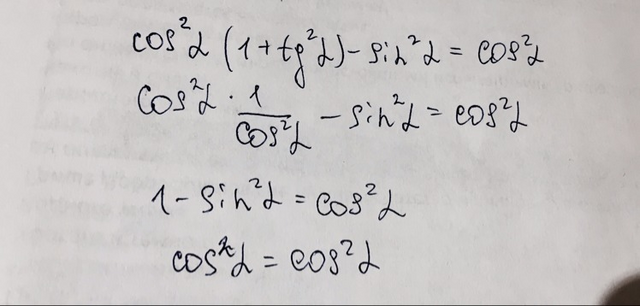 cos²α (1 + tg²α) − sin²α = cos²α
cos²α · 1/cos²α − sin²α = cos²α
1 − sin²α = cos²α
cos²α = cos²α